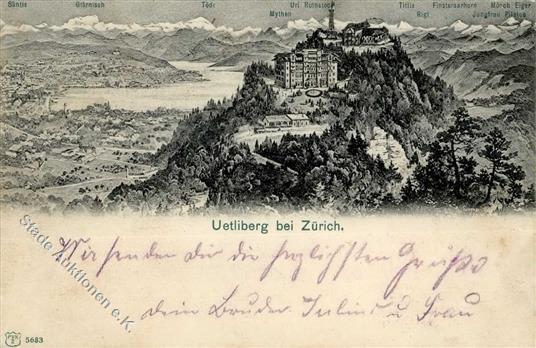 Säntis Glärnisch Tödi Mythen Uri Rothstock Titlis Rigi Finsteraarhorn Mönch Eiger Jungfrau Pilatus
Uetliberg bei Zürich.
Wir senden dir die herzlichsten Grüße
dein Bruder Julius u Frau
Stade Auktionen e.K.
5683